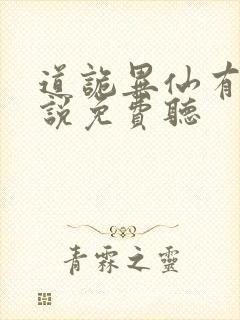 道詭異仙有
說免費聽
青霖之靈